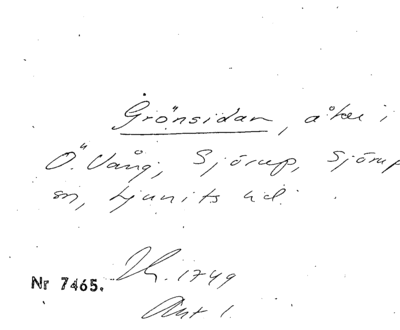 Grönsidan, åker i
Ö. Vång, Sjörup, Sjörup
sn, Ljunits hd.
Nr 7465.
1749
Akt 1.